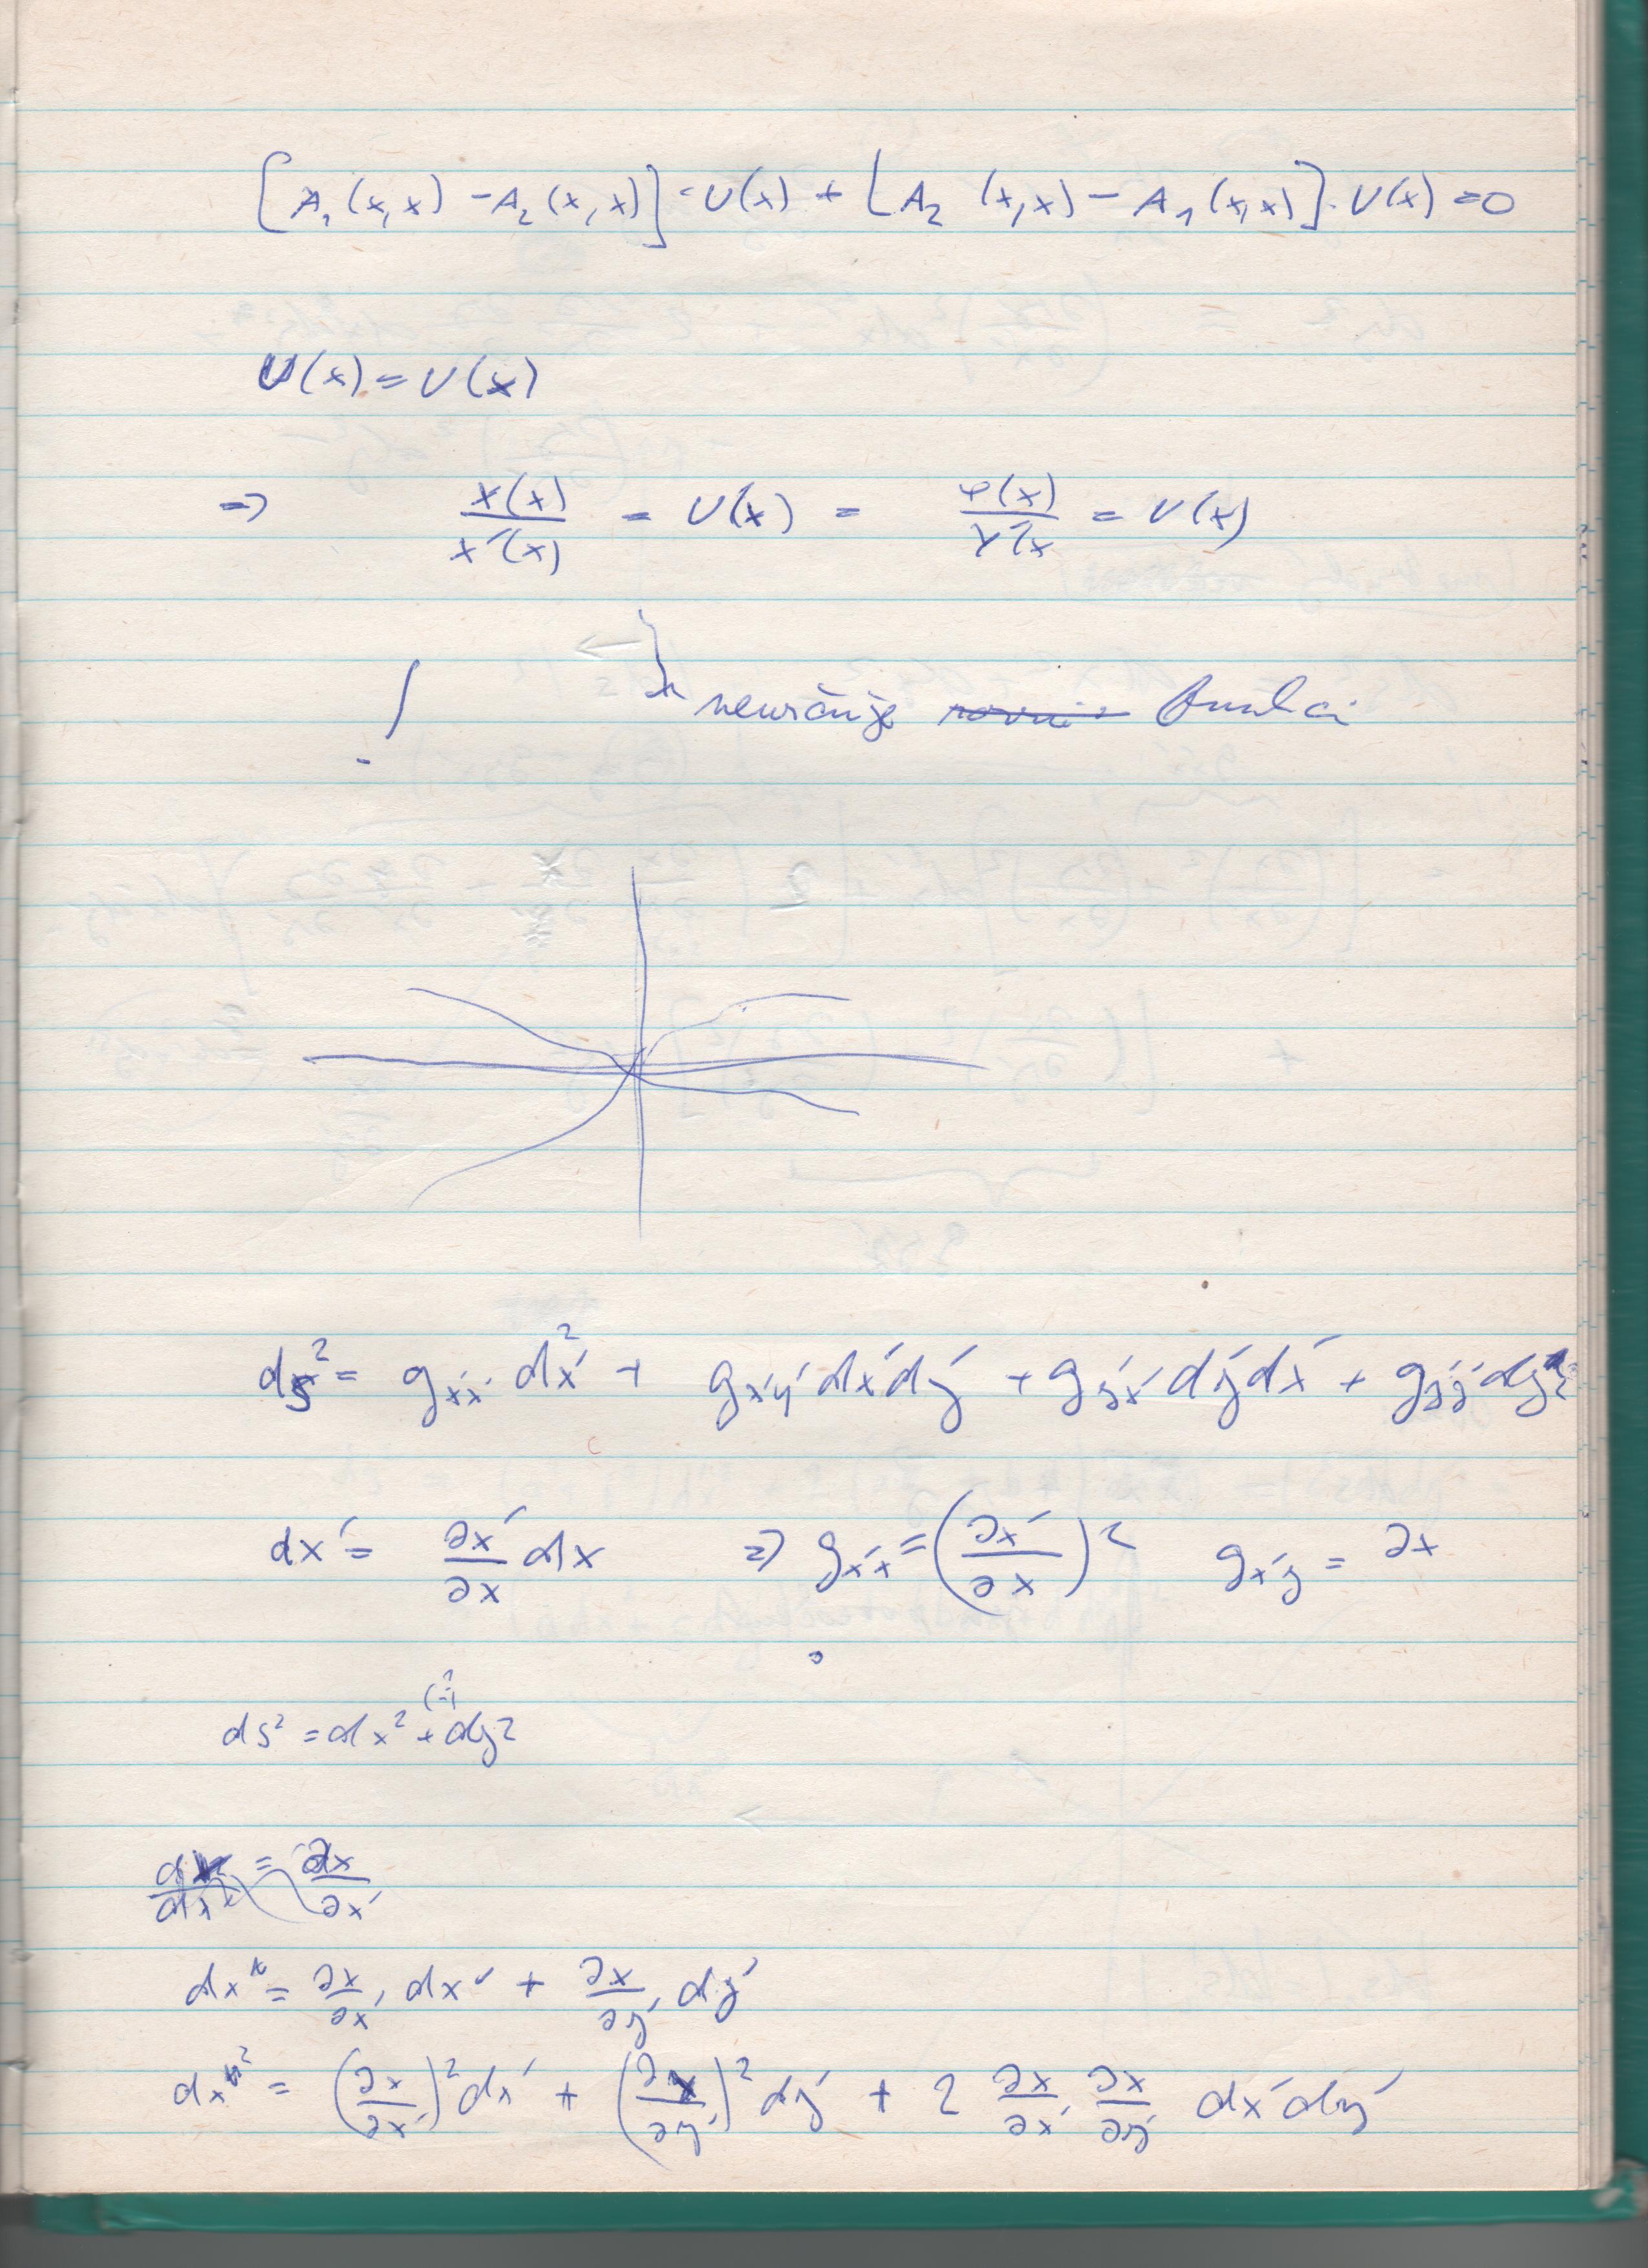 [A₁(x,x) - A₂(x,x)]·U(x) + [A₂(x,x) - A₁(x,x)]·V(x) = 0
U(x) = V(x)
⇒ X(x)/X´(x) = U(x) = Y(x)/Y´(x = V(x)
neurčuje funkci
ds² = gx´x´ dx´² + gx´y´ dx´dy´ + gy´x´ dy´dx´ + gy´y´ dy´²
dx´ = ∂x´/∂x dx ⇒ gx´x´ = (∂x´/∂x)² gx´y´ = ∂x
(-)
ds² = dx² + dy²
= ∂x/∂x´
dx = ∂x/∂x´ dx´ + ∂x/∂y´ dy´
dx² = (∂x/∂x´)² dx´ + (∂x/∂y´)² dy´ + 2 ∂x/∂x´ ∂x/∂y´ dx´dy´